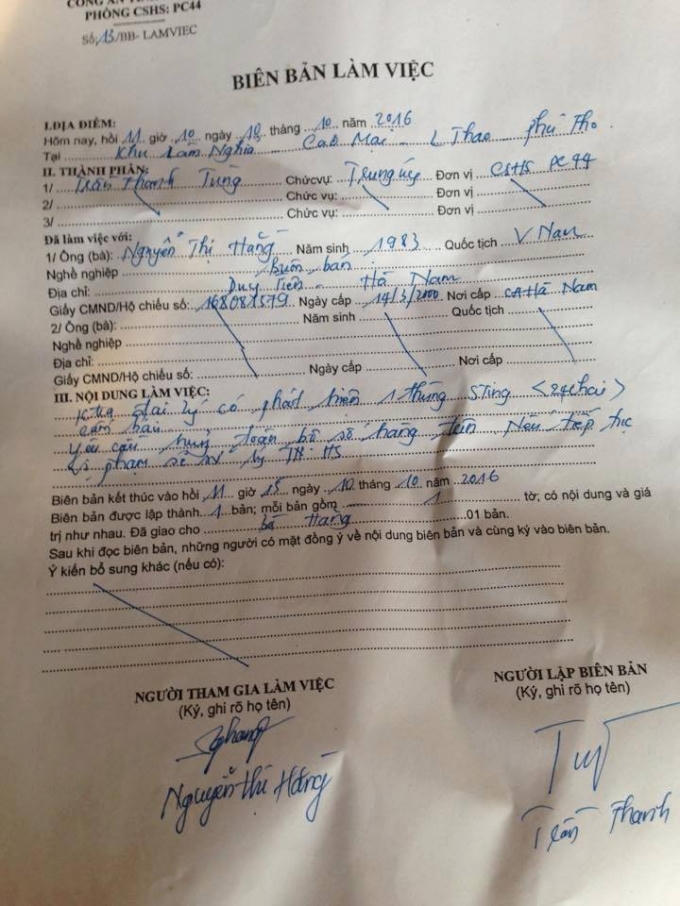 CÔNG AN
PHÒNG CSHS: PC44
Số: 13/BB- LAMVIEC
BIÊN BẢN LÀM VIỆC
I.ĐỊA ĐIỂM:
Hôm nay, hồi 11 giờ 10 ngày 10 tháng 10 năm 2016
Tại Khu Lâm Nghĩa Cao Mại L Thao Phú Thọ
II. THÀNH PHẦN:
1/ Trần Thanh Tùng Chức vụ: Trung úy Đơn vị CSHS PC 44
2/ Chức vụ: Đơn vị
3/ Chức vụ: Đơn vị
Đã làm việc với:
1/ Ông (bà): Nguyễn Thị Hằng Năm sinh 1983 Quốc tịch V Nam
Nghề nghiệp Buôn bán
Địa chỉ: Duy Tiên Hà Nam
Giấy CMND/Hộ chiếu số: Ngày cấp 14/3/2000 Nơi cấp CA Hà Nam
2/ Ông (bà): Năm sinh Quốc tịch
Nghề nghiệp
Địa chỉ:
Giấy CMND/Hộ chiếu số: Ngày cấp Nơi cấp
III. NỘI DUNG LÀM VIỆC:
Ktra đại lý có phát hiện 1 thùng Sting <24chai>
cấm bán
yêu cầu hủy toàn bộ số hàng trên Nếu tiếp tục
vi phạm sẽ xử lý HS
Biên bản kết thúc vào hồi 11 giờ 15 ngày 10 tháng 10 năm 2016
Biên bản được lập thành 1 bản; mỗi bản gồm 1 tờ; có nội dung và giá
trị như nhau. Đã giao cho bà Hằng 01 bản.
Sau khi đọc biên bản, những người có mặt đồng ý về nội dung biên bản và cùng ký vào biên bản.
Ý kiến bổ sung khác (nếu có):
NGƯỜI THAM GIA LÀM VIỆC
(Ký, ghi rõ họ tên)
Nguyễn Thị Hằng
NGƯỜI LẬP BIÊN BẢN
(Ký, ghi rõ họ tên)
Trần Thanh